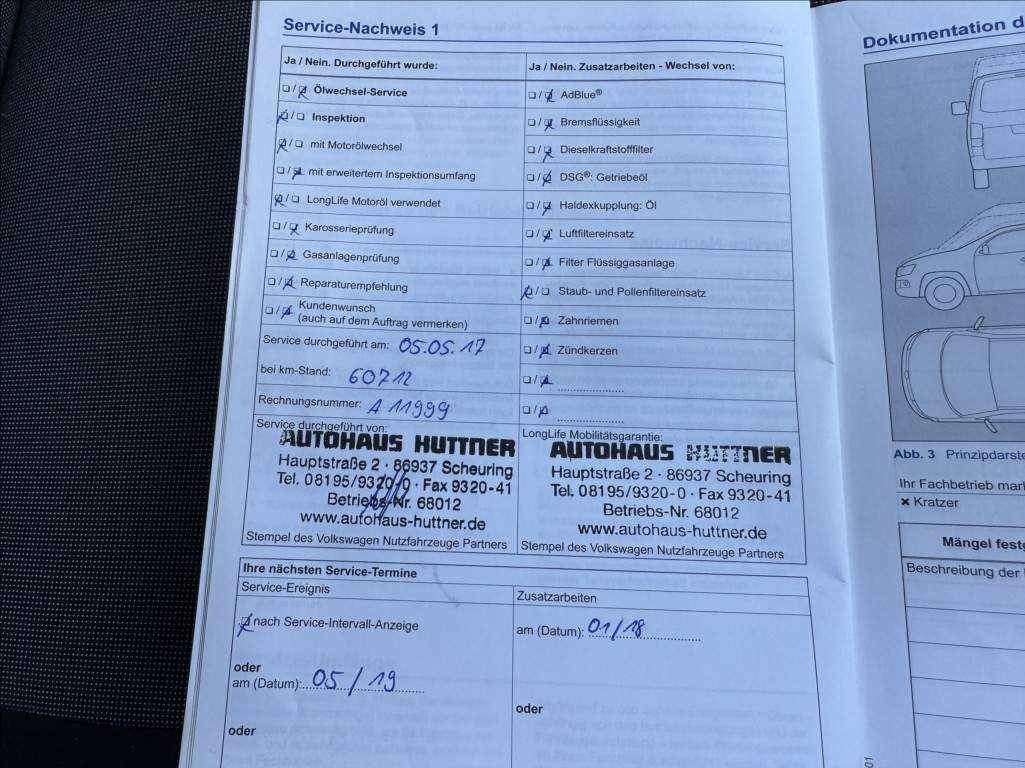 Service-Nachweis 1
Ja / Nein. Durchgeführt wurde:
❏ / ❏ Ölwechsel-Service
❏ / ❏ Inspektion
❏ / ❏ mit Motorölwechsel
❏ / ❏ mit erweitertem Inspektionsumfang
❏ / ❏ LongLife Motoröl verwendet
❏ / ❏ Karosserieprüfung
❏ / ❏ Gasanlagenprüfung
❏ / ❏ Reparaturempfehlung
❏ / ❏ Kundenwunsch
(auch auf dem Auftrag vermerken)
Service durchgeführt am: 05.05.17
bei km-Stand: 60712
Rechnungsnummer: A 11999
Service durchgeführt von:
AUTOHAUS HUTTNER
Hauptstraße 2 · 86937 Scheuring
Tel. 08195/9320-0 · Fax 9320-41
Betriebs-Nr. 68012
www.autohaus-huttner.de
Stempel des Volkswagen Nutzfahrzeuge Partners
Ja / Nein. Zusatzarbeiten - Wechsel von:
❏ / ❏ AdBlue®
❏ / ❏ Bremsflüssigkeit
❏ / ❏ Dieselkraftstofffilter
❏ / ❏ DSG®: Getriebeöl
❏ / ❏ Haldexkupplung: Öl
❏ / ❏ Luftfiltereinsatz
❏ / ❏ Filter Flüssiggasanlage
❏ / ❏ Staub- und Pollenfiltereinsatz
❏ / ❏ Zahnriemen
❏ / ❏ Zündkerzen
❏ / ❏ ....................
❏ / ❏ ....................
LongLife Mobilitätsgarantie:
AUTOHAUS HUTTNER
Hauptstraße 2 · 86937 Scheuring
Tel. 08195/9320-0 · Fax 9320-41
Betriebs-Nr. 68012
www.autohaus-huttner.de
Stempel des Volkswagen Nutzfahrzeuge Partners
Ihre nächsten Service-Termine
Service-Ereignis
❏ nach Service-Intervall-Anzeige
oder
am (Datum): 05/19
oder
Zusatzarbeiten
am (Datum): 01/18
oder
Dokumentation d
Abb. 3 Prinzipdarste
Ihr Fachbetrieb mar
× Kratzer
Mängel festg
Beschreibung der
01